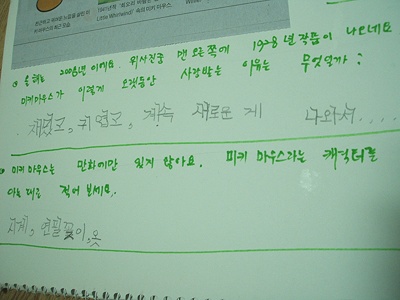 Little Whirlwind' 속의 미키 마우스
올해는 2008년 이에요. 위사진중 맨 오른쪽에 1928년 작품이 나오네요
미키마우스가 이렇게 오랫동안 사랑받는 이유는 무엇일까?
재밌고, 귀엽고, 계속 새로운 게 나와서....
미키마우스는 만화에만 있지 않아요. 미키 마우스라는 캐릭터를
다는 대로 적어 보세요.
시계, 연필꽂이, 옷